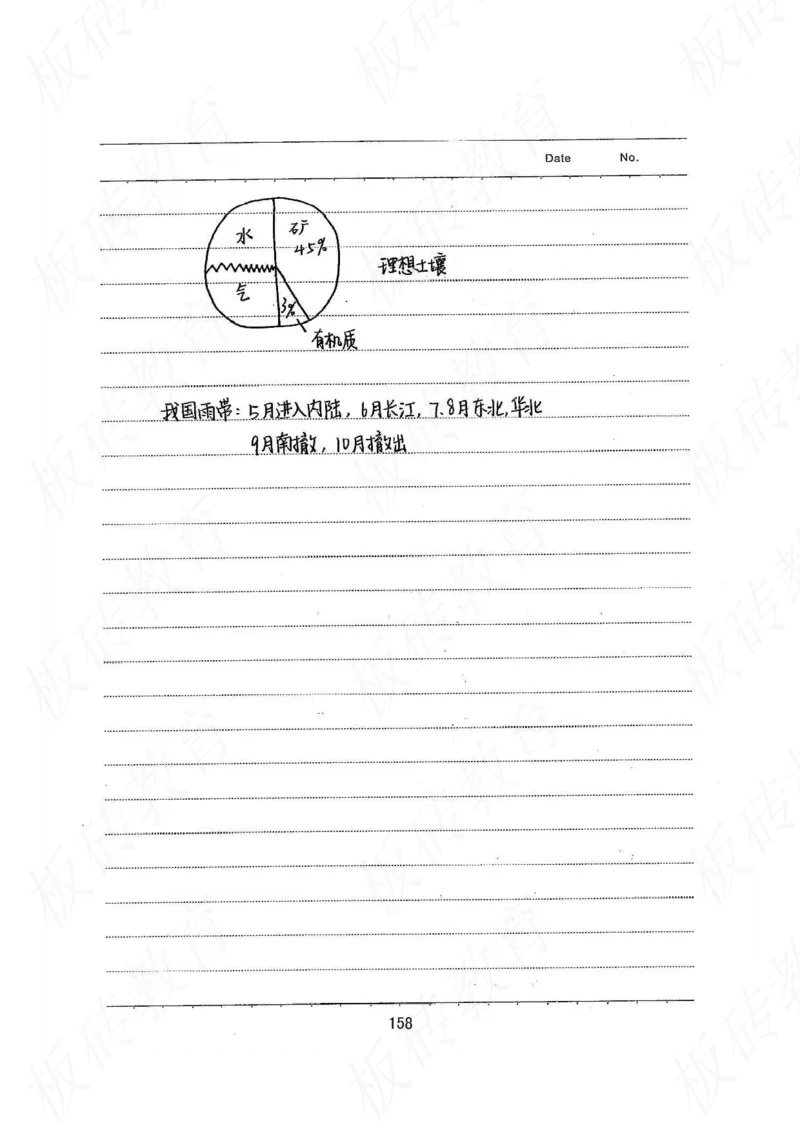 Date No.
水 矿
45%
理想土壤
气
3%
有机质
我国雨带：5月进入内陆，6月长江，7.8月东北，华北
9月南撤，10月撤出
158
板砖教育